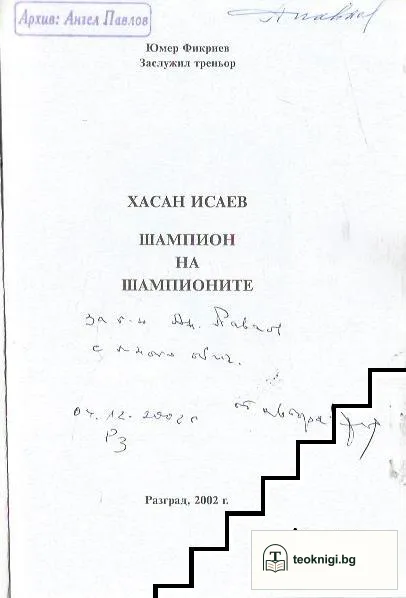 Архив: Ангел Павлов
Юмер Фикриев
Заслужил треньор
ХАСАН ИСАЕВ
ШАМПИОН
НА
ШАМПИОНИТЕ
за г-н Ан. Павлов
с много обич.
04.12.2002 г
от автора
РЗ
Разград, 2002 г.
teoknigi.bg